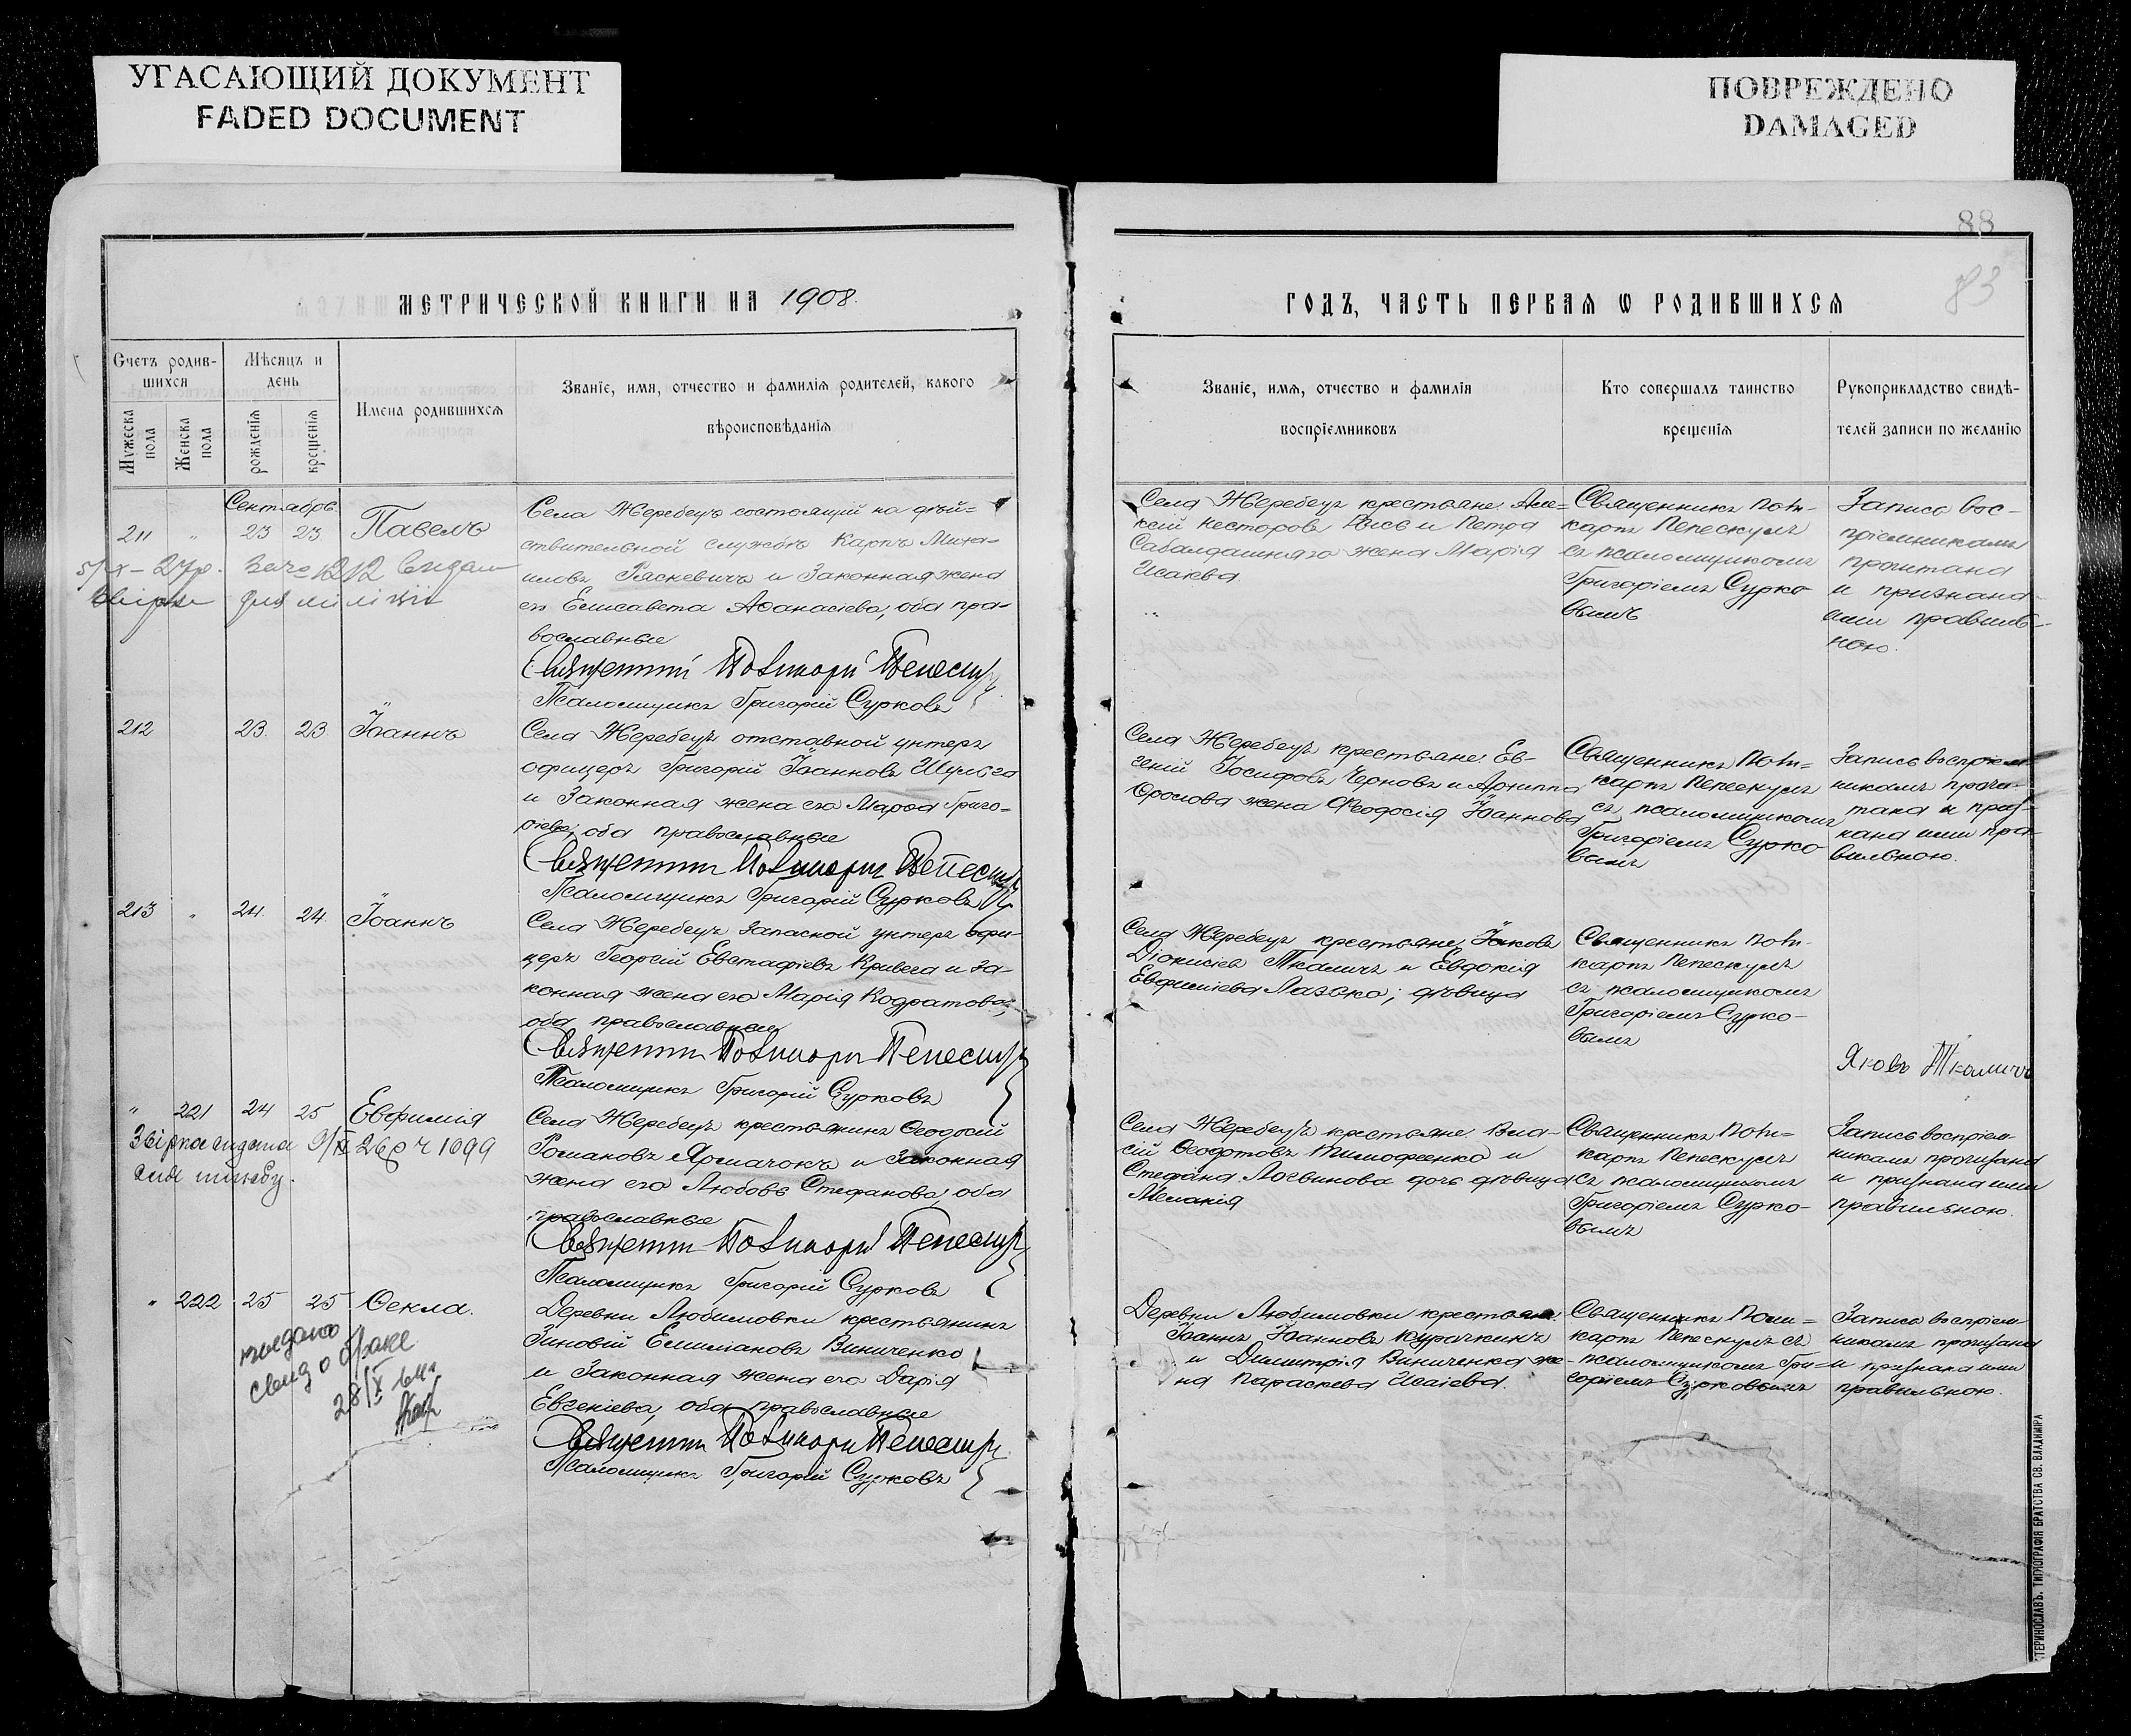 УГАСАЮЩИЙ ДОКУМЕНТ
FADED DOCUMENT
ПОВРЕЖДЕНО
DAMAGED
88
83
МЕТРИЧЕСКОЙ КНИГИ НА 1908.
ГОДЪ, ЧАСТЬ ПЕРВАЯ Ѡ РОДИВШИХСЯ
Счетъ родив-
шихся
Мѣсяцъ и
день
Мужеска
пола
Женска
пола
рожденїя
крещенїя
Имена родившихся
Званїе, имя, отчество и фамилїя родителей, какого
вѣроисповѣданїя
Званїе, имя, отчество и фамилїя
воспрїемниковъ
Кто совершалъ таинство
крещенїя
Рукоприкладство свидѣ-
телей записи по желанїю
Сентябрь
211 " 23 23 Павелъ
Села Жеребецъ состоящій на дѣй=
ствительной службѣ Карпъ Миха-
иловъ Ряскевичъ и законная жена
его Елисавета Аѳанасіева, оба пра-
вославные
Священникъ Поликарпъ Пепескулъ
Псаломщикъ Григорій Сурковъ
Села Жеребецъ крестьяне Але=
ксій Несторовъ и Петра
Сабалдашняго жена Марія
Исаіева
Священникъ Поли-
карпъ Пепескулъ
съ псаломщикомъ
Григоріемъ Сурко
вымъ
Запись вос-
пріемникамъ
прочитана
и признана
ими правиль-
ною.
212 23. 23 Іоаннъ
Села Жеребецъ отставной унтеръ
офицеръ Григорій Іоанновъ Шульга
и законная жена его Марѳа Григо=
ріева; оба православные
Священникъ Поликарпъ Пепескулъ
Псаломщикъ Григорій Сурковъ
Села Жеребецъ крестьяне: Ев-
геній Іосифовъ Черновъ и Архиппа
Фролова жена Феодосія Іоаннова
Священникъ Поли=
карпъ Пепескулъ
съ псаломщикомъ
Григоріемъ Сурко
вымъ
Запись воспріем
никамъ прочи-
тана и приз-
нана ими пра-
вильною.
213 " 24. 24. Іоаннъ
Села Жеребецъ запасной унтеръ офи-
церъ Георгій Евстафіевъ Кривега и за-
конная жена его Марія Кодратова;
оба православные
Священникъ Поликарпъ Пепескулъ
Псаломщикъ Григорій Сурковъ
Села Жеребецъ крестьяне: Іаковъ
Діонисіевъ Ткаличъ и Евдокія
Евфиміева Лазько; дѣвица
Священникъ Поли-
карпъ Пепескулъ
съ псаломщикомъ
Григоріемъ Сурко-
вымъ
Яковъ Ткаличъ
" 221 24 25 Евфимія
Села Жеребецъ крестьянинъ Ѳеодосій
Романовъ Ярмачокъ и законная
жена его Любовь Стефанова, оба
православные
Священникъ Поликарпъ Пепескулъ
Псаломщикъ Григорій Сурковъ
Села Жеребецъ крестьяне: Вла-
сій Ѳеодотовъ Тимофеенко и
Стефана Логвинова дочь дѣвица
Меланія
Священникъ Поли=
карпъ Пепескулъ
съ псаломщикомъ
Григоріемъ Сурко-
вымъ
Запись воспріем-
никамъ прочитана
и признана ими
правильною.
" 222 25 25 Ѳекла.
28/X
Деревни Любимовки крестьянинъ
Зиновій Емиліановъ Виниченко
и законная жена его Дарія
Евгеніева, оба православные
Священникъ Поликарпъ Пепескулъ
Псаломщикъ Григорій Сурковъ
Деревни Любимовки крестьяне:
Іоаннъ Іоанновъ Курачкинъ
и Димитрія Виниченка же-
на Параскева Исаіева.
Священникъ Поли=
карпъ Пепескулъ съ
псаломщикомъ Гри=
горіемъ Сурковымъ
Запись воспріем-
никамъ прочитана
и признана ими
правильною.
ТЕРИНОСЛАВЪ. ТИПОГРАФІЯ БРАТСТВА СВ. ВЛАДИМІРА